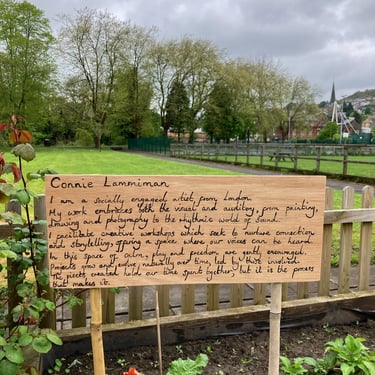 Connie Lammiman
I am a socially engaged artist, from London
My work embraces both the visual and auditory, from painting,
drawing and photography to the rhythmic world of sound.
I facilitate creative workshops which seek to nurture connection
and storytelling, offering a space where our voices can be heard.
In this space of calm, play and freedom are gently encouraged.
Projects you evolve naturally over time, led by those involved
The pieces created hold our time spent together, but it is the process
that makes it.